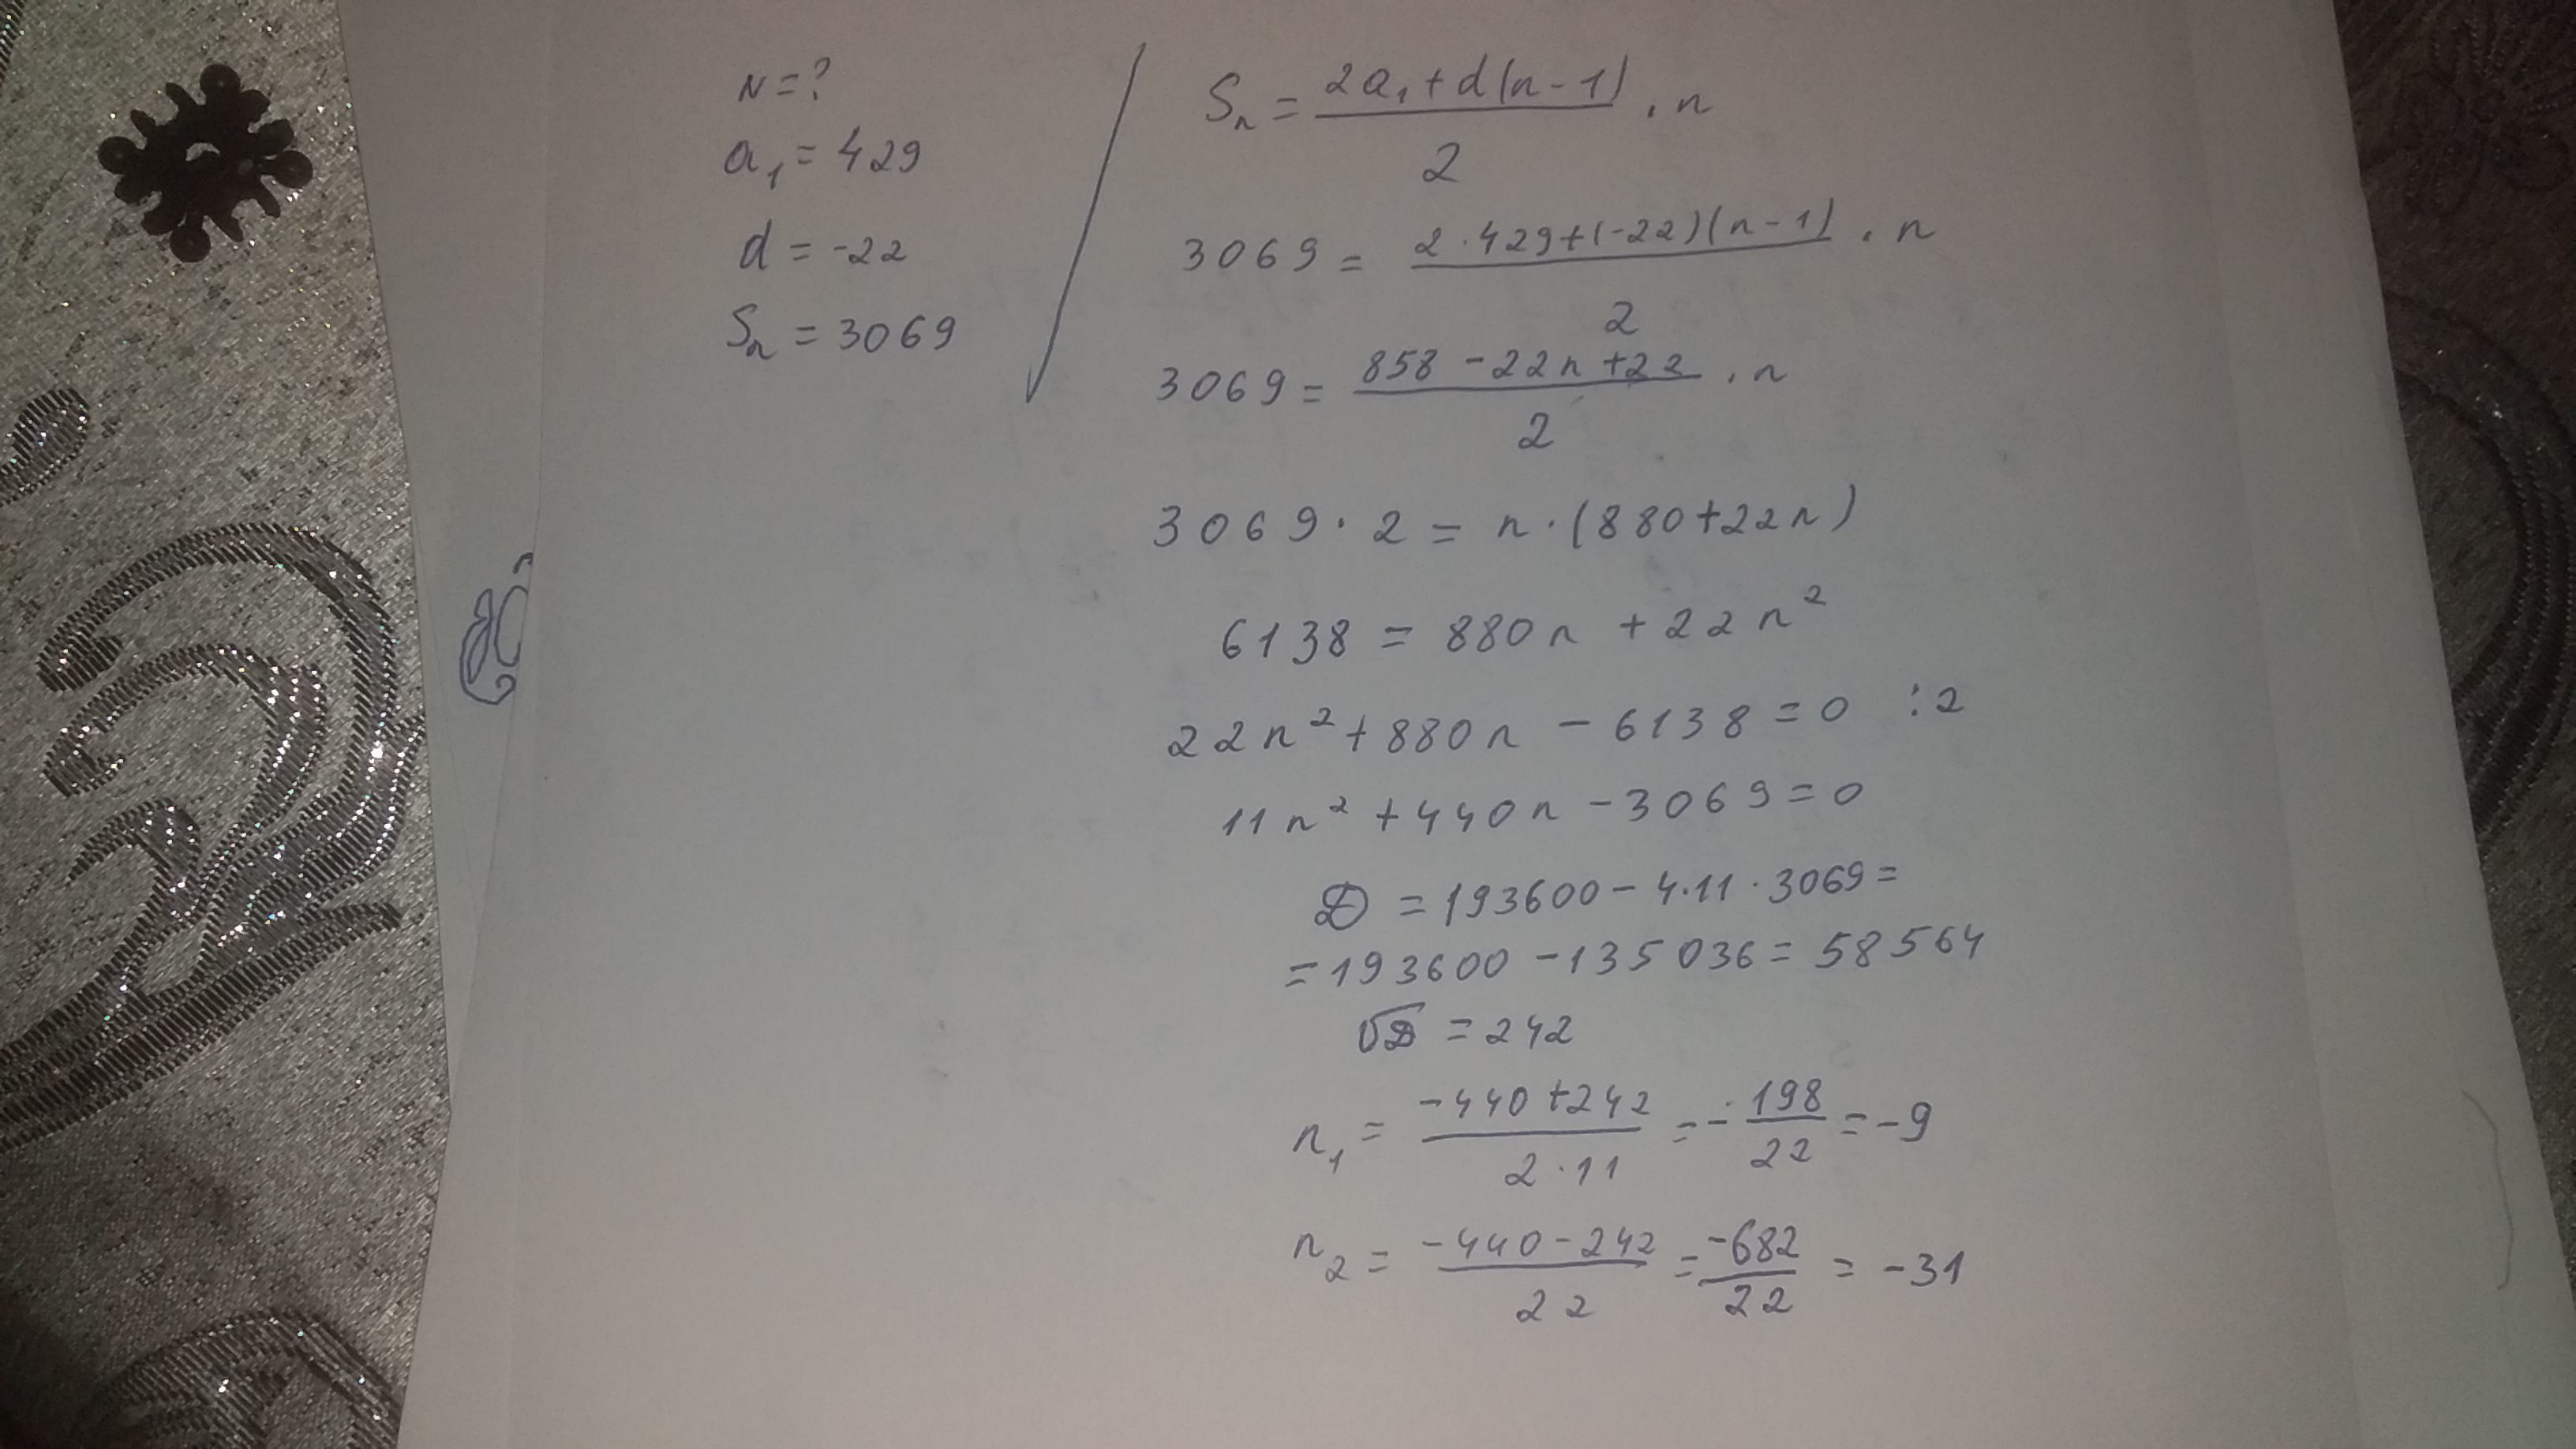 N = ?
a₁ = 429
d = -22
Sₙ = 3069
Sₙ = (2a₁ + d(n - 1))/2 · n
3069 = (2 · 429 + (-22)(n - 1))/2 · n
3069 = (858 - 22n + 22)/2 · n
3069 · 2 = n · (880 + 22n)
6138 = 880n + 22n²
22n² + 880n - 6138 = 0 :2
11n² + 440n - 3069 = 0
D = 193600 - 4·11·3069 =
= 193600 - 135036 = 58564
√D = 242
n₁ = (-440 + 242)/(2·11) = -198/22 = -9
n₂ = (-440 - 242)/22 = -682/22 = -31